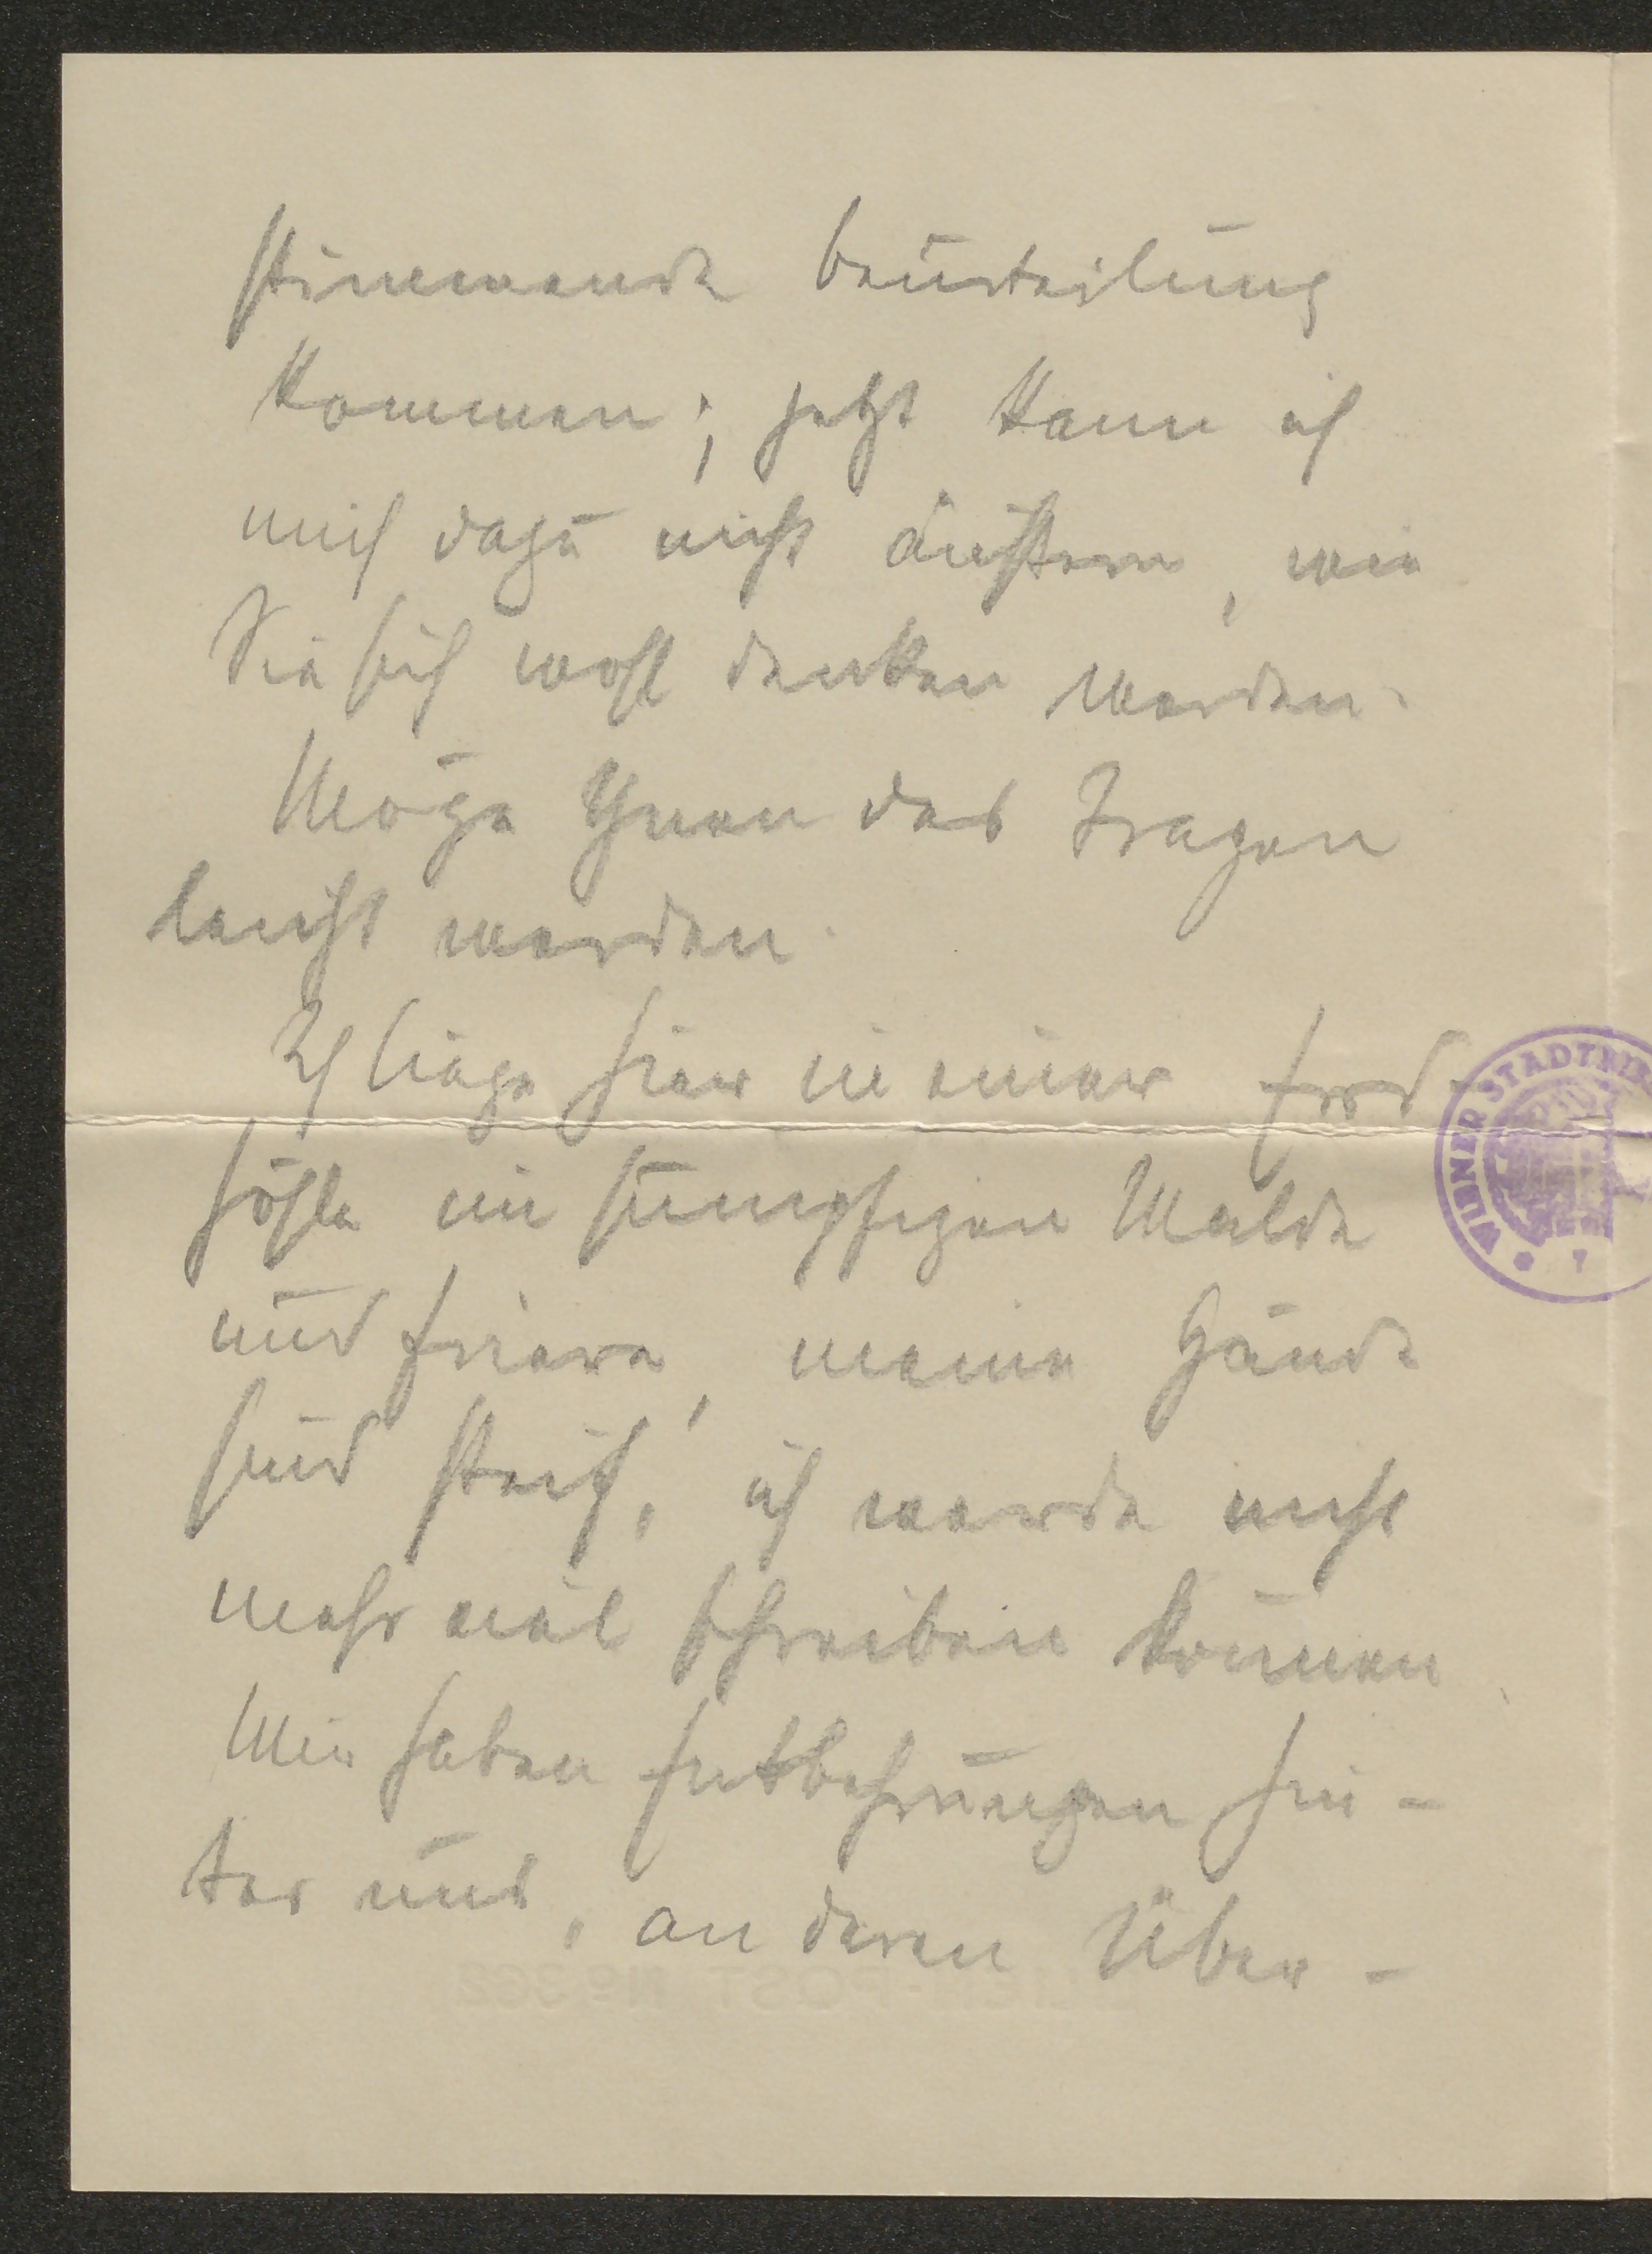 stimmende Beurteilung
kommen; jetzt kann ich
mich dazu nicht äußern, wie
Sie sich wohl denken werden.
Möge Ihnen das Tragen
leicht werden.
Ich liege hier in einer Erd-
höhle im sumpfigen Walde
und friere, meine Hände
sind steif, ich werde nicht
mehr viel schreiben können.
Wir haben Entbehrungen hin-
ter uns, an deren Über-
WIENER STADTBIB
7
POST No 302